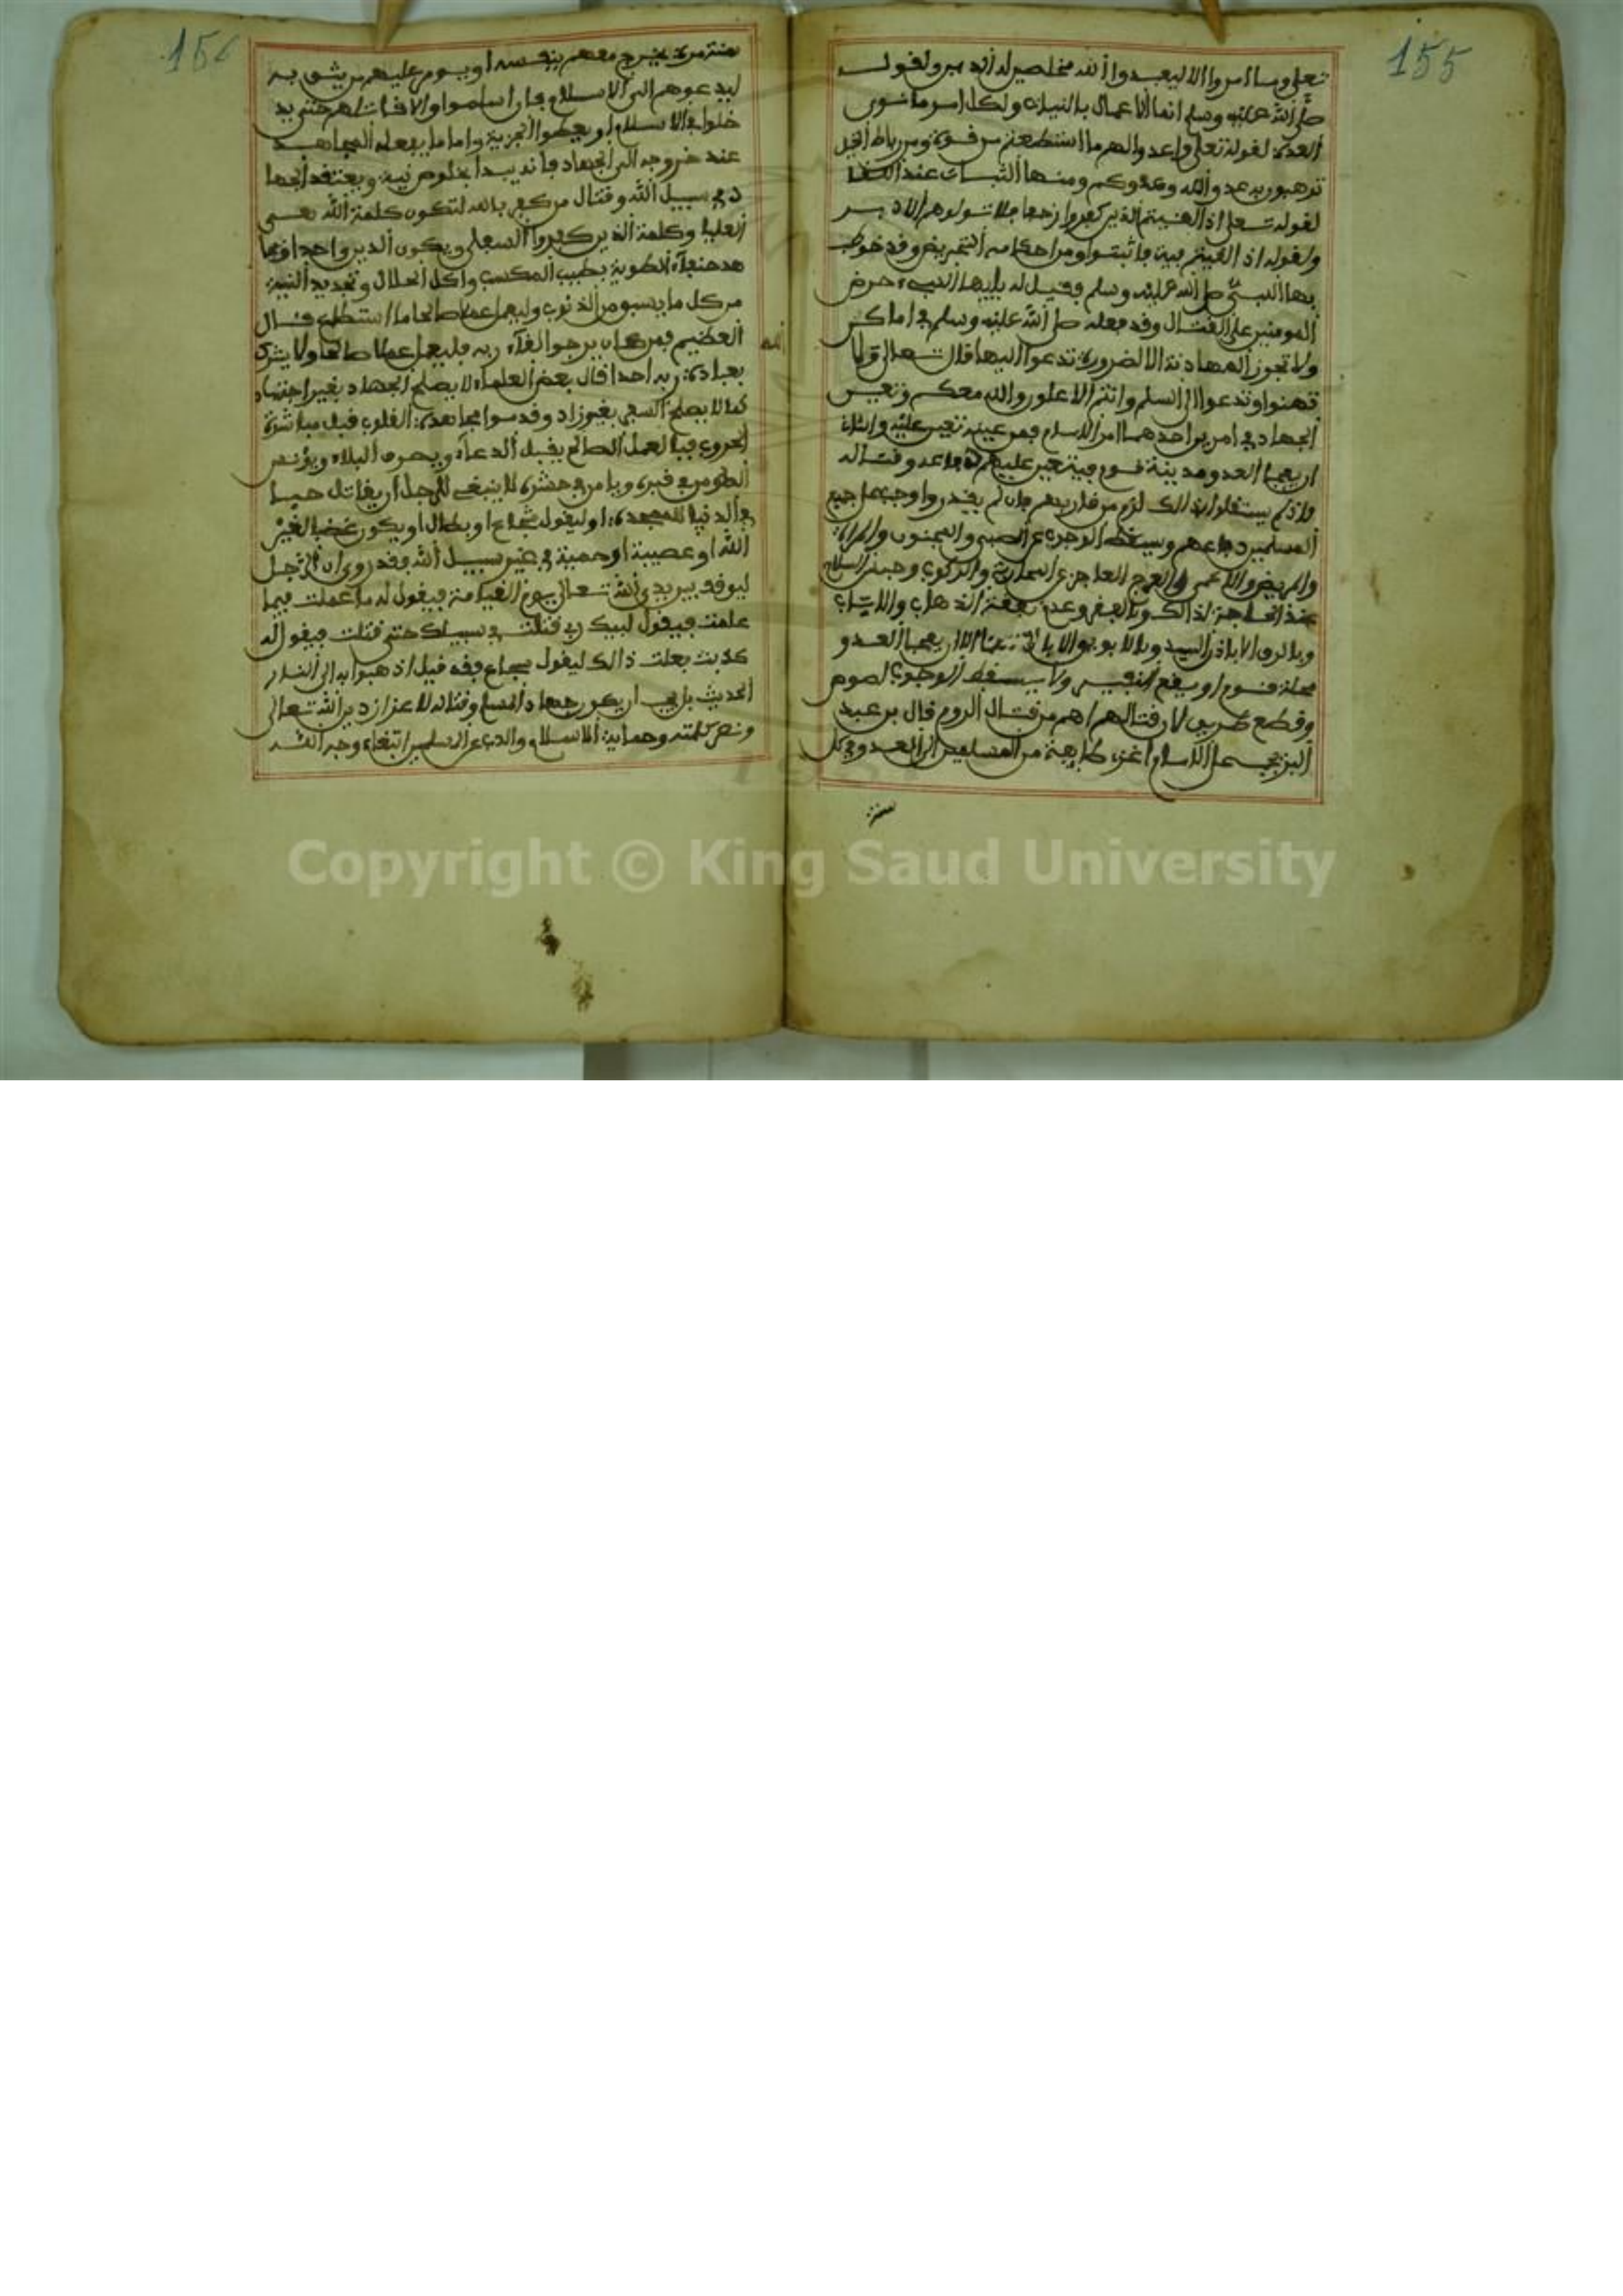 155
تعلى وما امروا الا ليعبدوا الله مخلصين له الدين ولقول
صلى الله عليه وسلم انما الاعمال بالنيات ولكل امرء ما نوى
العدة لقوله تعلى واعدوا لهم ما استطعتم من قوة ومن رباط الخيل
ترهبون به عدو الله وعدوكم ومنها الثبات عند اللقا
لقوله تعلى اذا لقيتم الذين كفروا زحفا فلا تولوهم الادبر
ولقوله اذا لقيتم فية فاثبتوا ومن احكامه التحريض وقد خوطب
بها النبيء صلى الله عليه وسلم فقيل له يايها النبيء حرض
المومنين على القتال وقد فعله صلى الله عليه وسلم في اماكن
ولا تجوز المهادنة الا لضرورة تدعوا اليها قال تعالى ولا
تهنوا وتدعوا الى السلم وانتم الاعلون والله معكم وتعين
الجهاد في امرين احدهما امر الامام فمن عينه تعين عليه والثان
ان يفجا العدو مدينة قوم فيتعين عليهم دفاعه وقتاله
فان لم يستقلوا بذالك لزم من قاربهم فان لم يقدروا وجب على جميع
المسلمين دفاعهم ويسقط الوجوب عن الصبي والمجنون والمراة
والمريض والاعمى والاعرج العاجز عن السلاح والركوب وعن السلاح
عند الحاجة لذالك وبالفقر وعدم نفقة الذهاب والاياب
وبالرق الا باذن السيد وبالابوين الا باذنهما الا ان يفجا العدو
محلة قوم او يقع النفير ولا يسقط الوجوب لصوص
وقطع طريق لان قتالهم اهم من قتال الروم قال بن عبد
البر يجب على الامام اغزاء طايفة من المسلمين الى العدو في كل
سنة
156
سنة مرة يخرج معهم بنفسه او يومر عليهم من يثق به
ليدعوهم الى الاسلام فان اسلموا والا قاتلهم حتى يد
خلوا في الاسلام او يعطوا الجزية واما ما يفعله المجاهد
عند خروجه الى الجهاد فانه يبدا بخلوص نية ويعتقد الجها
د في سبيل الله وقتال من كفر بالله لتكون كلمة الله هي
العليا وكلمة الذين كفروا السفلى ويكون الدين واحدا
الطوية بطيب المكسب واكل الحلال وتجديد النية
من كل ما يسبو من الذنوب وليعمل عملا صالحا ما استطاع قال
العظيم فمن كان يرجوا لقآء ربه فليعمل عملا صالحا ولا يشرك
بعبادة ربه احدا قال بعض العلمآء لا يصلح الجهاد بغير اجتهاد
كما لا يصلح السفر بغير زاد وقدموا مجاهدة القلوب قبل مباشرة
الحروب فبالعمل الصالح يقبل الدعآء ويصرف البلاء ويؤنس
المومن في قبره ويامن في حشره لا ينبغي للرجل ان يقاتل حبا
في الدنيا للمحمدة او ليقول شجاع او بطال او يكون غضبا لغير
الله او عصيبة او حمية في غير سبيل الله فقد روى ان الرجل
ليوقف بين يدي الله تعالى يوم القيامة فيقول له ما عملت فيما
علمت فيقول لبيك رب قتلت في سبيلك حتى قتلت فيقول له
كذبت فعلت ذالك ليقول شجاع فقد قيل اذهبوا به الى النار
الحديث بل يجب ان يكون جهاد المسلم وقتاله لاعزاز دين الله تعالى
ونصر كلمته وحماية الاسلام والذب عن المسلمين ابتغاء وجه الله
Copyright © King Saud University